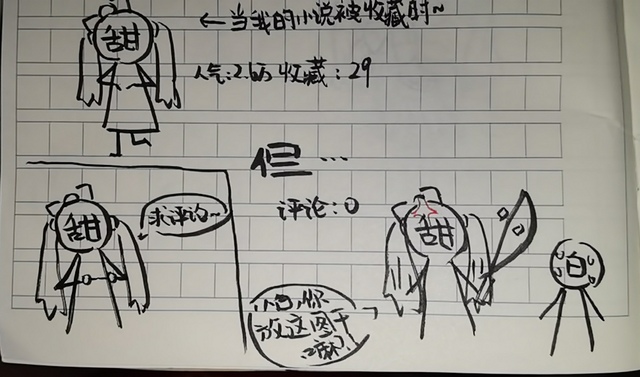 甜
←当我的小说被收藏时~
人气:2.6万 收藏:29
但…
评论:0
甜
求评论~
甜
白
小白,你
放这图干
嘛?!